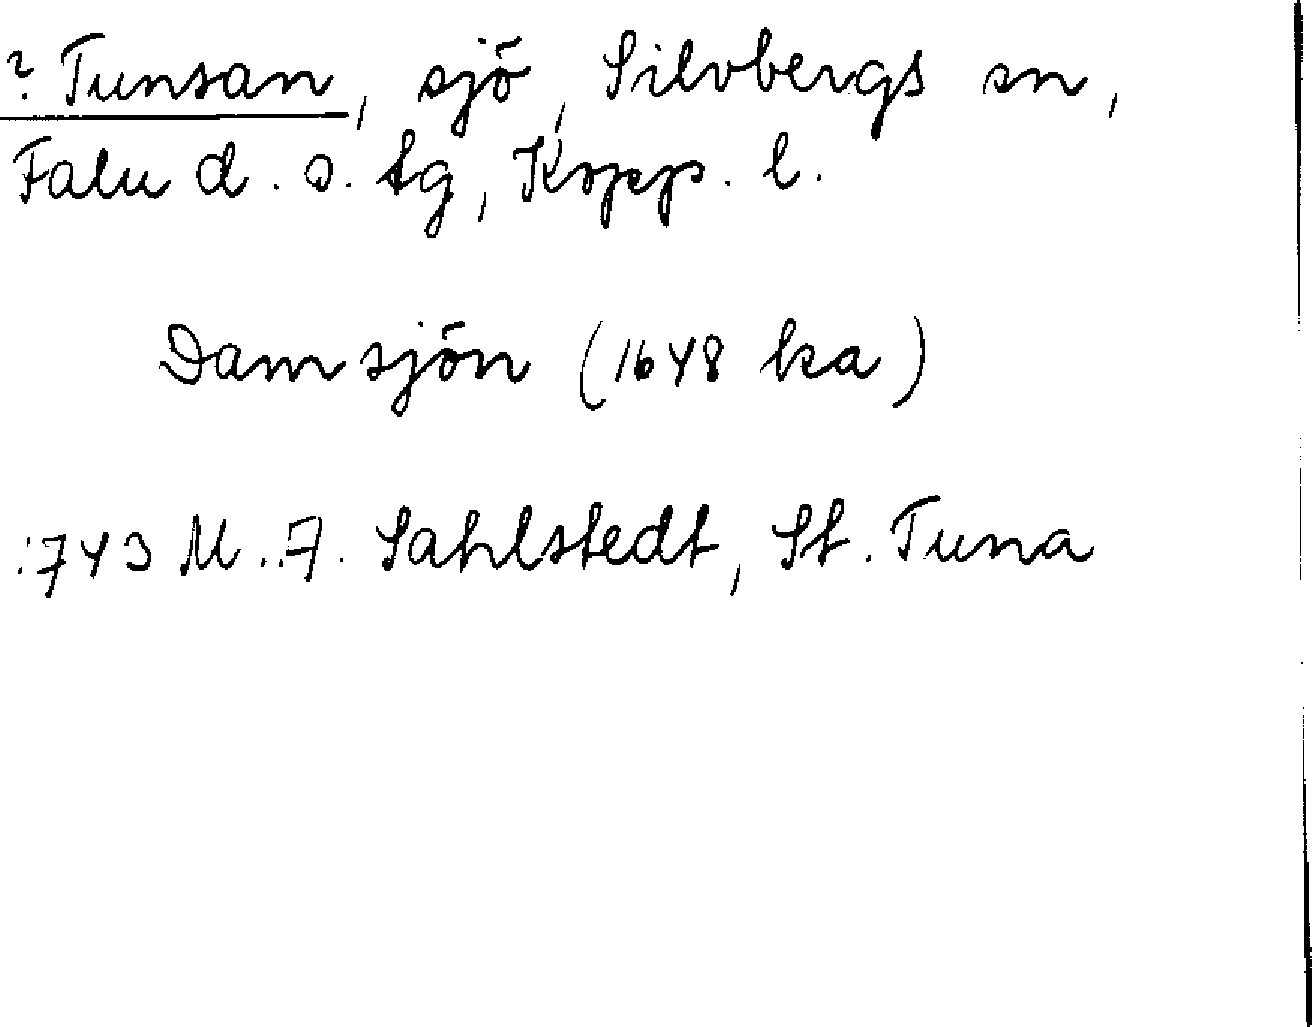 ? Tunsan, sjö, Silvbergs sn,
Falu d. s. tg, Kopp. l.
Damsjön (1648 ka)
:743 M. A. Sahlstedt, St. Tuna